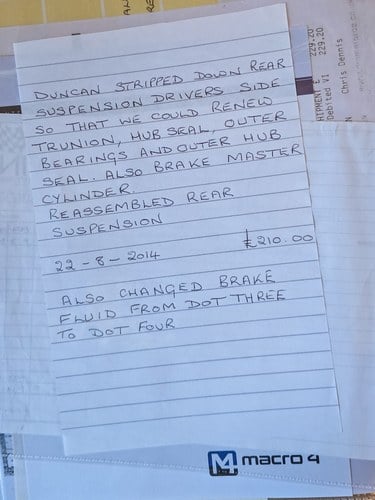 AN
RE
229.20
SHIPMENT E
229.20
Debited VI
Chris Dennis
DUNCAN STRIPPED DOWN REAR
SUSPENSION DRIVERS SIDE
SO THAT WE COULD RENEW
TRUNION, HUB SEAL, OUTER
BEARINGS AND OUTER HUB
SEAL. ALSO BRAKE MASTER
CYLINDER.
REASSEMBLED REAR
SUSPENSION
£210.00
22-8-2014
ALSO CHANGED BRAKE
FLUID FROM DOT THREE
TO DOT FOUR
macro 4